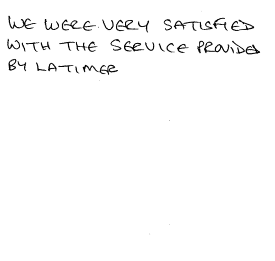 WE WERE VERY SATISFIED
WITH THE SERVICE PROVIDED
BY LATIMER